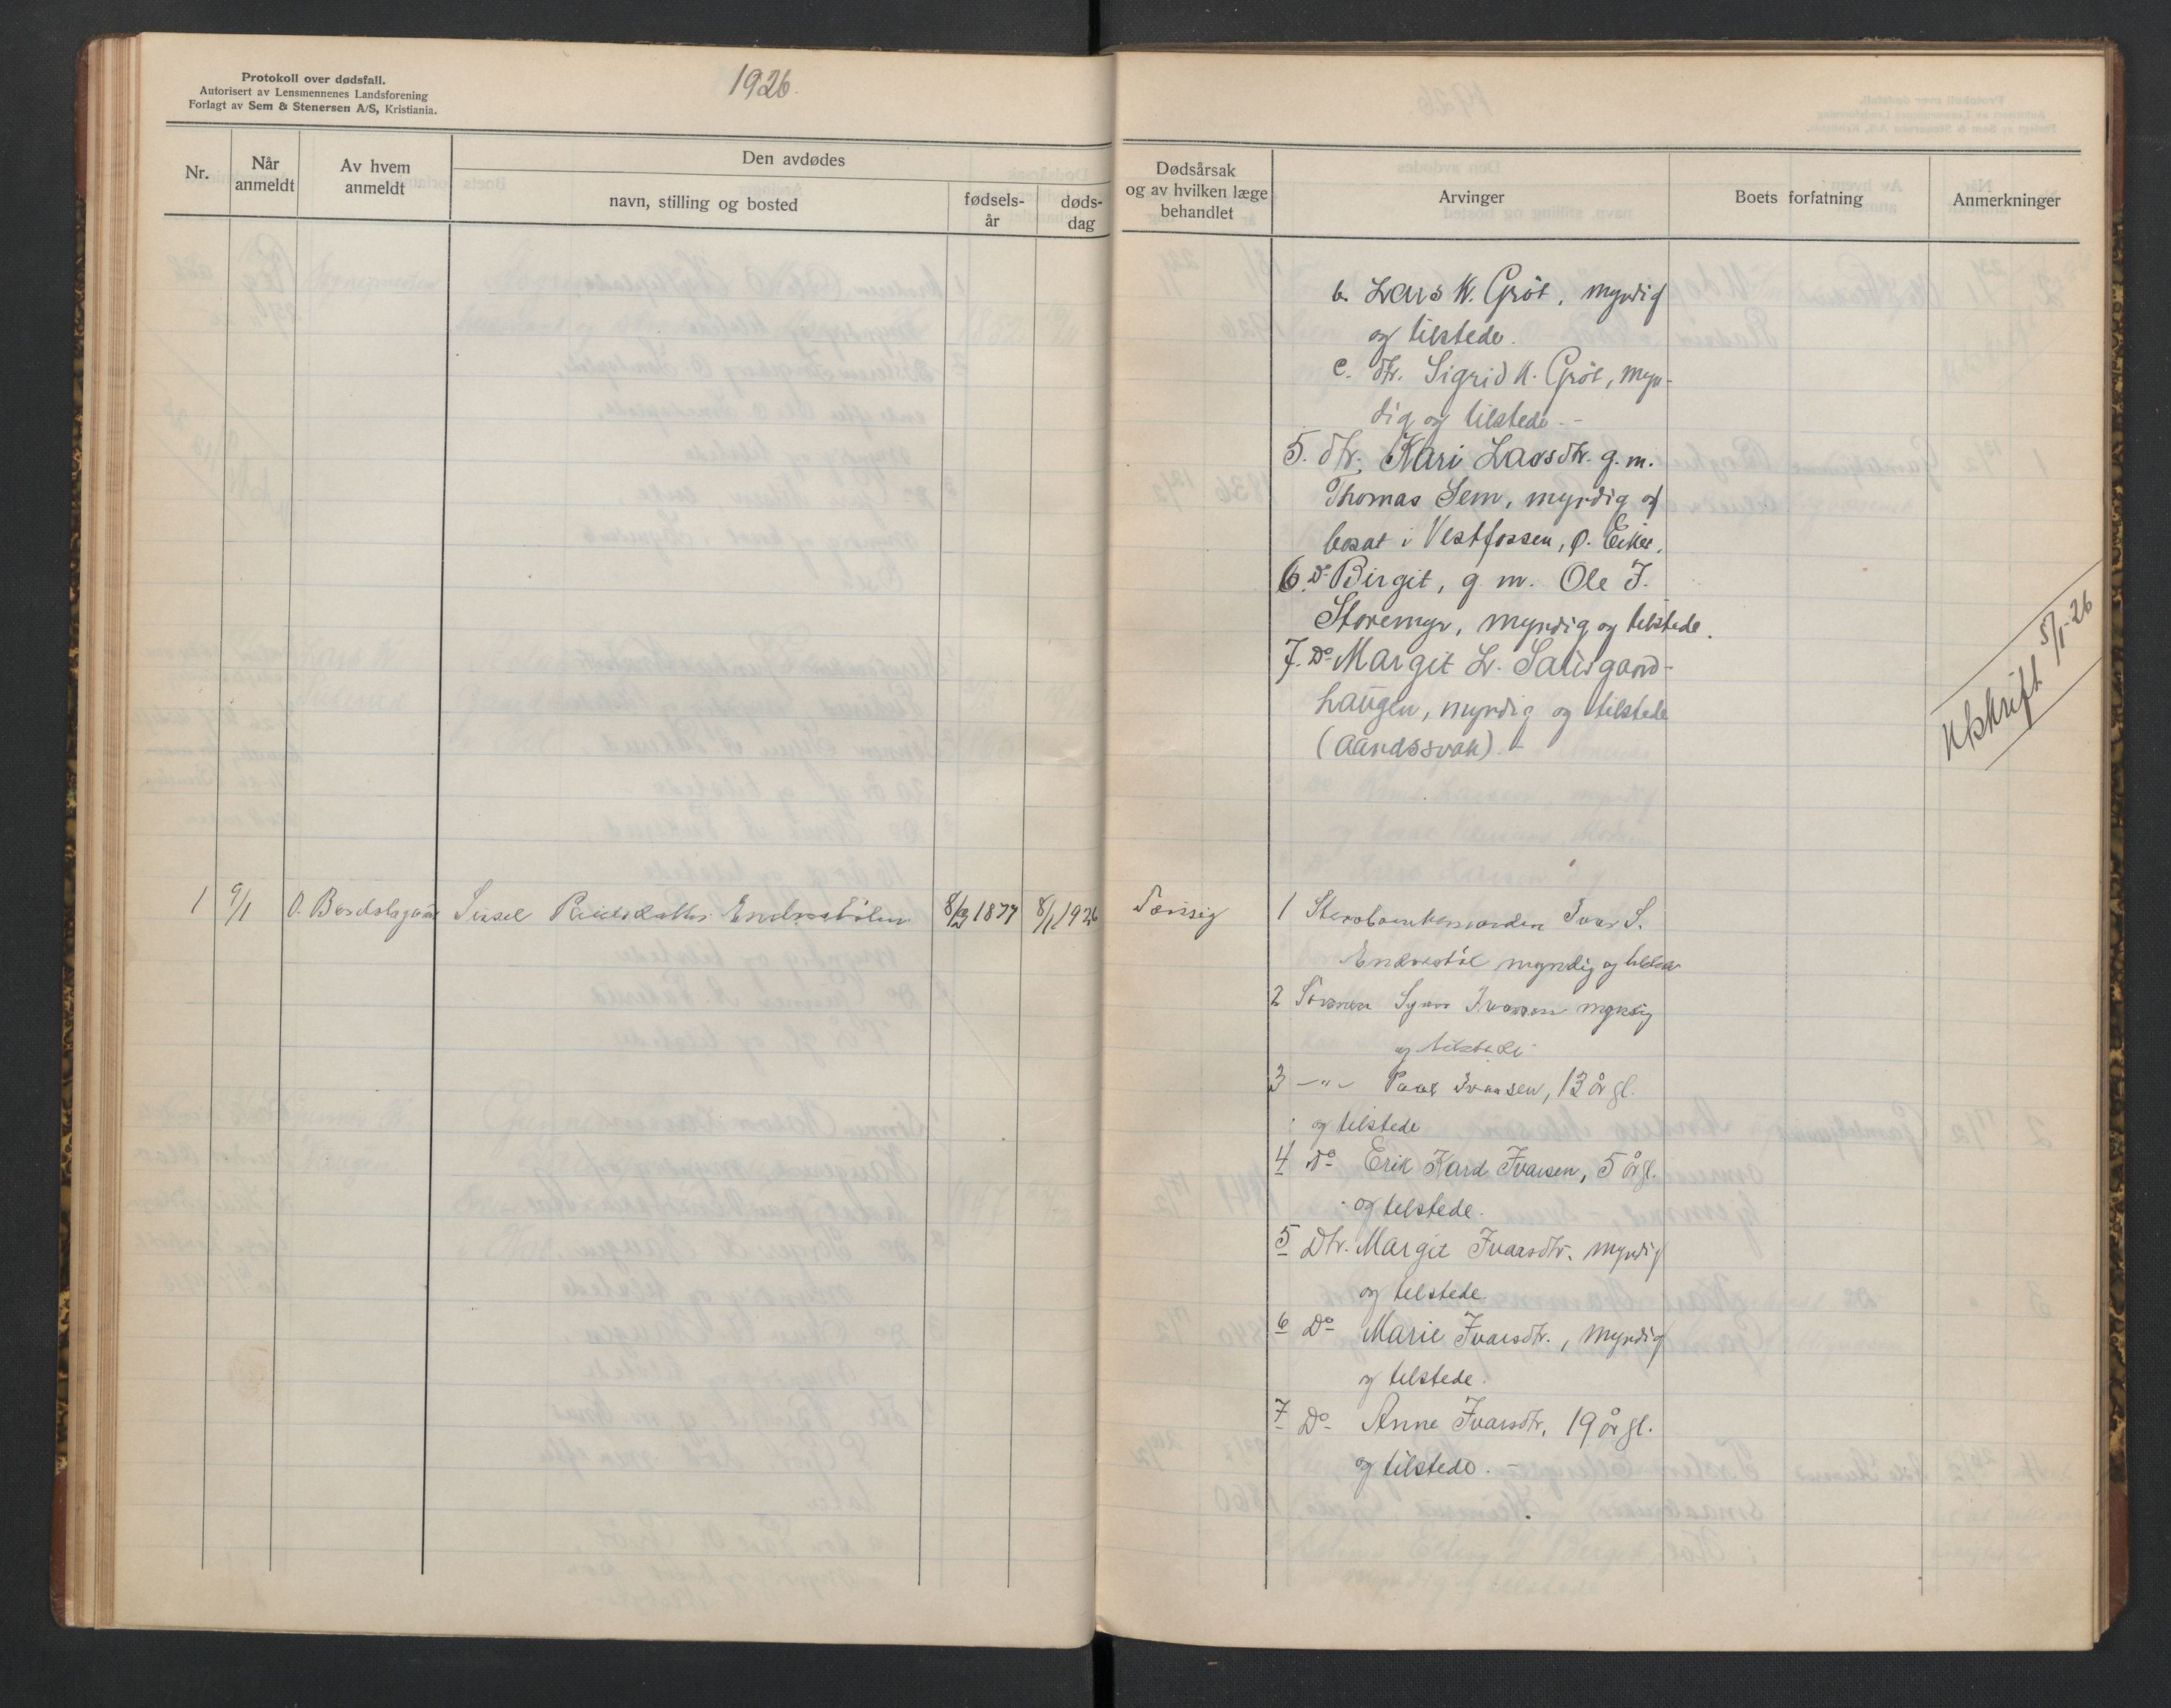 Protokoll over dødsfall.
Autorisert av Lensmennenes Landsforening
Forlagt av Sem & Stenersen A/S, Kristiania.
1926.
Nr.
Når anmeldt
Av hvem anmeldt
Den avdødes
navn, stilling og bosted
fødsels-år
døds-dag
Dødsårsak
og av hvilken læge
behandlet
Arvinger
Boets forfatning
Anmerkninger
b. Lars K. Grøt, myndig
og tilstede.
c. dtr. Sigrid K. Grøt, myn-
dig og tilstede. -
5. dtr. Kari Larsdtr. g. m.
Thomas Sem, myndig og
bosat i Vestfossen, Ø. Eiker.
6. Do Birgit, g. m. Ole J.
Storemyr, myndig og tilstede.
7. Do Margit L. Satisgaard-
haugen, myndig og tilstede
(Aandssvak). -
Utskrift 5/1-26
1 9/1 O. Bardslagaard Sissel Paulsdatter Endrestølen 8/3 1877 8/1 1926
1 Ivar S.
Endrestøl myndig og
2 Sønnen Ivarsen myndig
og tilstede
3 -"- Paul Ivarsen, 13 år gl.
og tilstede
4 Do Erik Kard Ivarsen, 5 år gl.
og tilstede.
5 Dtr. Margit Ivarsdtr. myndig
og tilstede.
6 Do Marie Ivarsdtr., myndig
og tilstede.
7 Do Anne Ivarsdtr, 19 år gl.
og tilstede. -